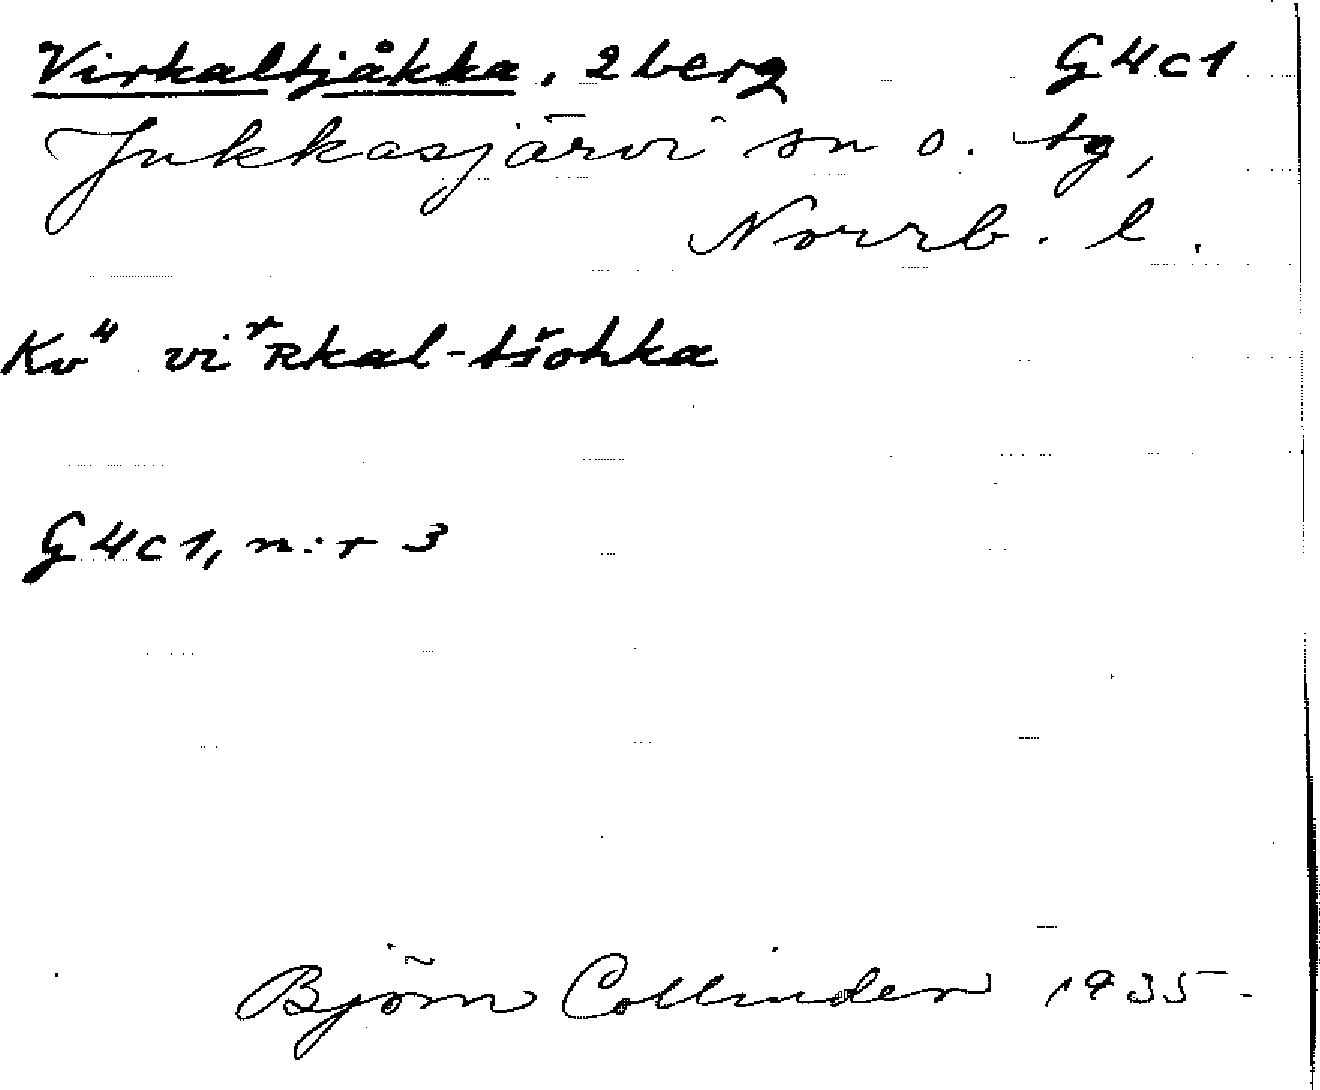 Virkaltjåkka, 2 berg G4c1
Jukkasjärvi sn o. tg,
Norrb. l.
Kv" viʳRkal-tšohka
G4c1, n:r 3
Björn Collinder 1935.